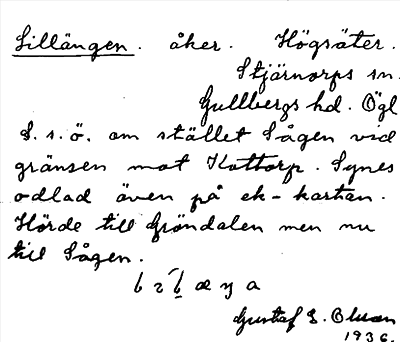 Lillängen. åker. Högsäter.
Stjärnorps sn.
Gullbergs hd. Ögl
S. s. ö. om stället Sågen vid
gränsen mot Kattorp. Synes
odlad även på ek-kartan.
Hörde till Gröndalen men nu
till Sågen.
Gustaf S. Olsson
1936.